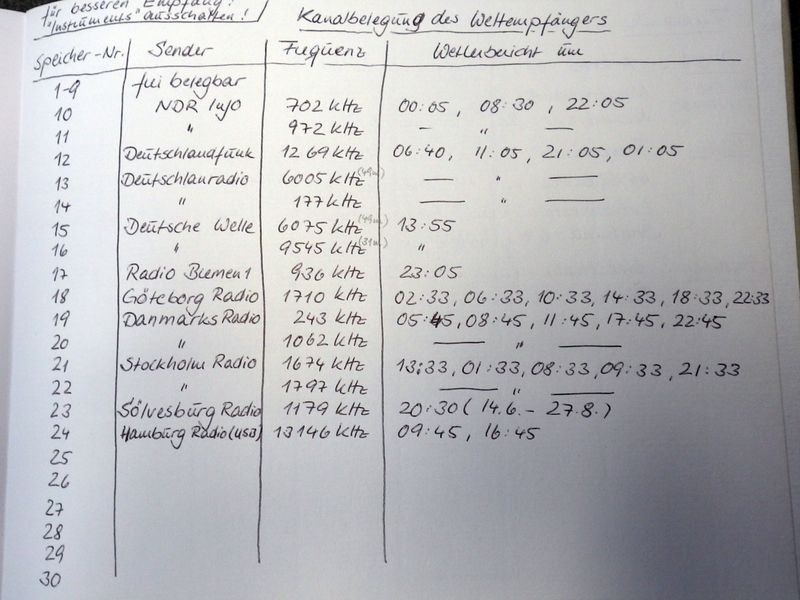 für besseren Empfang:
"Instruments" ausschalten!
Kanalbelegung des Weltempfängers
Speicher-Nr. Sender Frequenz Wetterbericht um
1-9 frei belegbar
10 NDR Info 702 kHz 00:05, 08:30, 22:05
11 " 972 kHz — " —
12 Deutschlandfunk 1269 kHz 06:40, 11:05, 21:05, 01:05
13 Deutschlanradio 6005 kHz (49m) — " —
14 " 177 kHz — " —
15 Deutsche Welle 6075 kHz (49m) 13:55
16 " 9545 kHz (31m) "
17 Radio Bremen 1 936 kHz 23:05
18 Göteborg Radio 1710 kHz 02:33, 06:33, 10:33, 14:33, 18:33, 22:33
19 Danmarks Radio 243 kHz 05:45, 08:45, 11:45, 17:45, 22:45
20 " 1062 kHz — " —
21 Stockholm Radio 1674 kHz 13:33, 01:33, 08:33, 09:33, 21:33
22 " 1797 kHz — " —
23 Sölvesburg Radio 1179 kHz 20:30 (14.6. - 27.8.)
24 Hamburg Radio (USB) 13146 kHz 09:45, 16:45
25
26
27
28
29
30